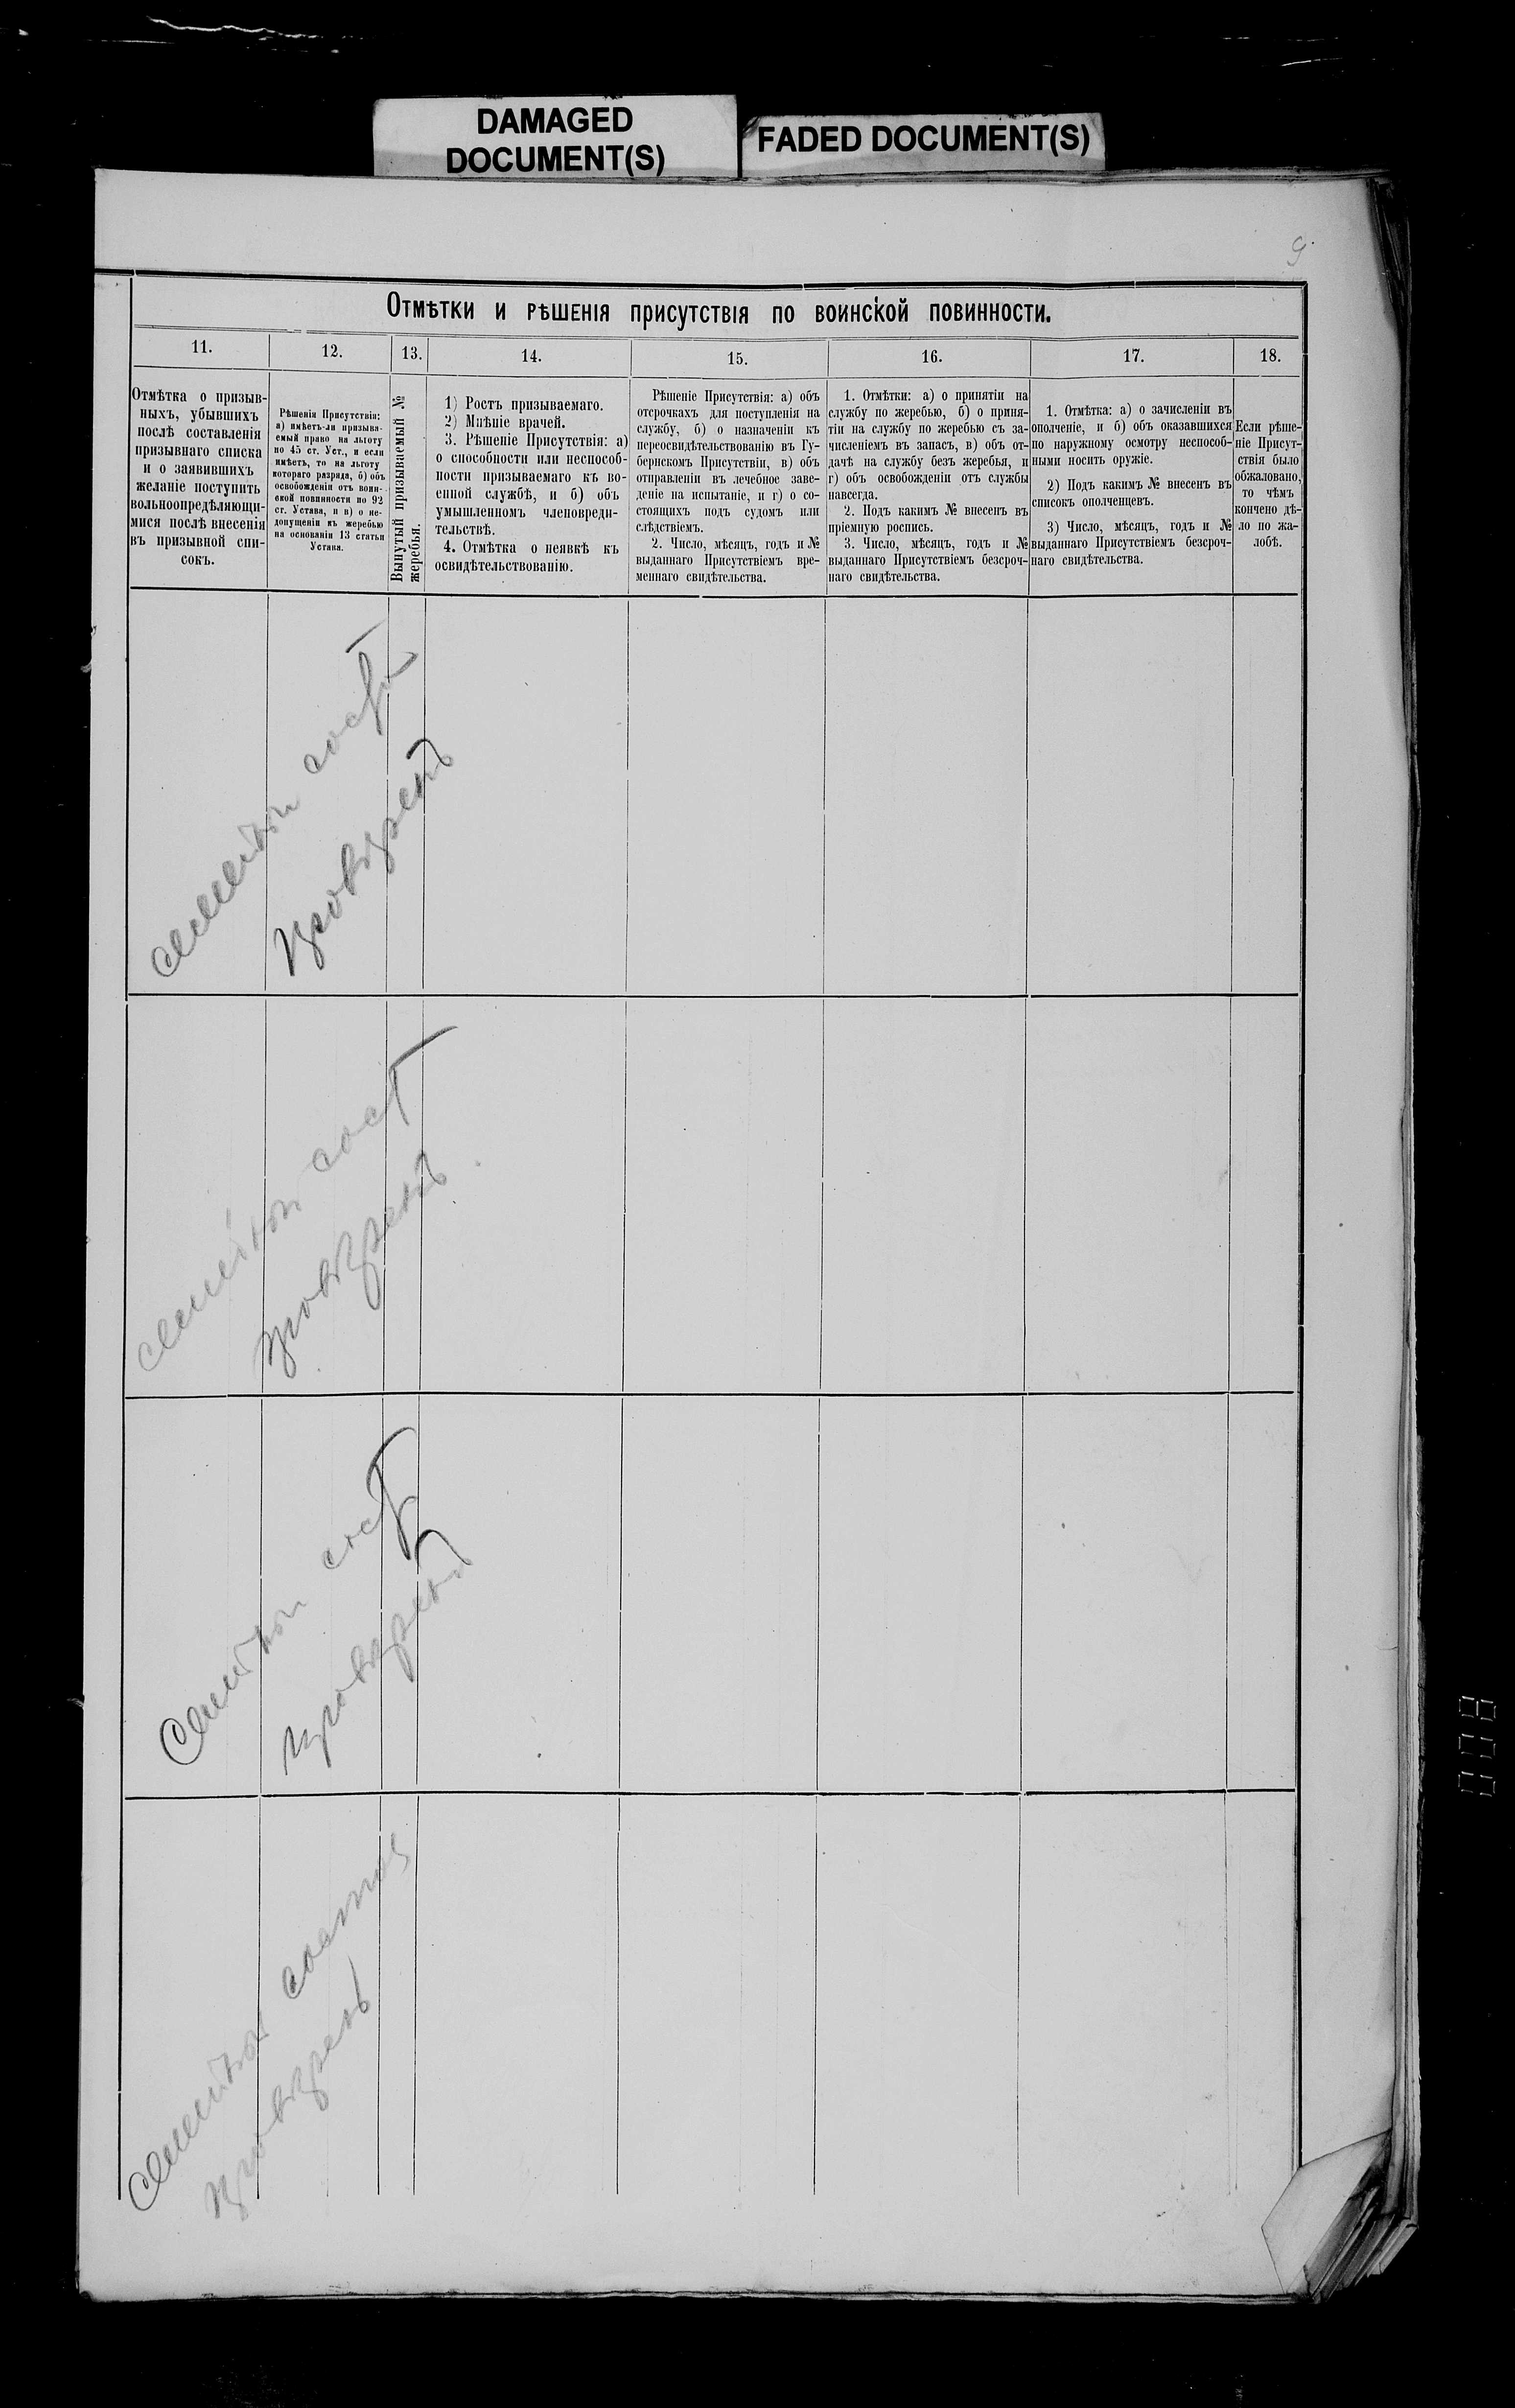 DAMAGED
DOCUMENT(S)
FADED DOCUMENT(S)
9
Отмѣтки и рѣшенія присутствія по воинской повинности.
11.
12.
13.
14.
15.
16.
17.
18.
Отмѣтка о призыв-
ныхъ, убывшихъ
послѣ составленія
призывнаго списка
и о заявившихъ
желаніе поступить
вольноопредѣляющи-
мися послѣ внесенія
въ призывной спи-
сокъ.
Рѣшенія Присутствія:
а) имѣетъ-ли призыва-
емый право на льготу
по 45 ст. Уст., и если
имѣетъ, то на льготу
котораго разряда, б) объ
освобожденіи отъ воин-
ской повинности по 92
ст. Устава, и в) о не-
допущеніи къ жеребью
на основаніи 13 статьи
Устава.
Вынутый призываемый №
жеребья.
1) Ростъ призываемаго.
2) Мнѣніе врачей.
3. Рѣшеніе Присутствія: а)
о способности или неспособ-
ности призываемаго къ во-
енной службѣ, и б) объ
умышленномъ членовреди-
тельствѣ.
4. Отмѣтка о неявкѣ къ
освидѣтельствованію.
Рѣшеніе Присутствія: а) объ
отсрочкахъ для поступленія на
службу, б) о назначеніи къ
переосвидѣтельствованію въ Гу-
бернскомъ Присутствіи, в) объ
отправленіи въ лечебное заве-
деніе на испытаніе, и г) о со-
стоящихъ подъ судомъ или
слѣдствіемъ.
2. Число, мѣсяцъ, годъ и №
выданнаго Присутствіемъ вре-
меннаго свидѣтельства.
1. Отмѣтки: а) о принятіи на
службу по жеребью, б) о приня-
тіи на службу по жеребью съ за-
численіемъ въ запасъ, в) объ от-
дачѣ на службу безъ жеребья, и
г) объ освобожденіи отъ службы
навсегда.
2. Подъ какимъ № внесенъ въ
пріемную роспись.
3. Число, мѣсяцъ, годъ и №
выданнаго Присутствіемъ безсроч-
наго свидѣтельства.
1. Отмѣтка: а) о зачисленіи въ
ополченіе, и б) объ оказавшихся
по наружному осмотру неспособ-
ными носить оружіе.
2) Подъ какимъ № внесенъ въ
списокъ ополченцевъ.
3) Число, мѣсяцъ, годъ и №
выданнаго Присутствіемъ безсроч-
наго свидѣтельства.
Если рѣше-
ніе Присут-
ствія было
обжаловано,
то чѣмъ
кончено дѣ-
ло по жа-
лобѣ.
семейной
провѣренъ
семейной сост
провѣренъ
Семейной сост
провѣренъ
Семейной состав
провѣренъ
008